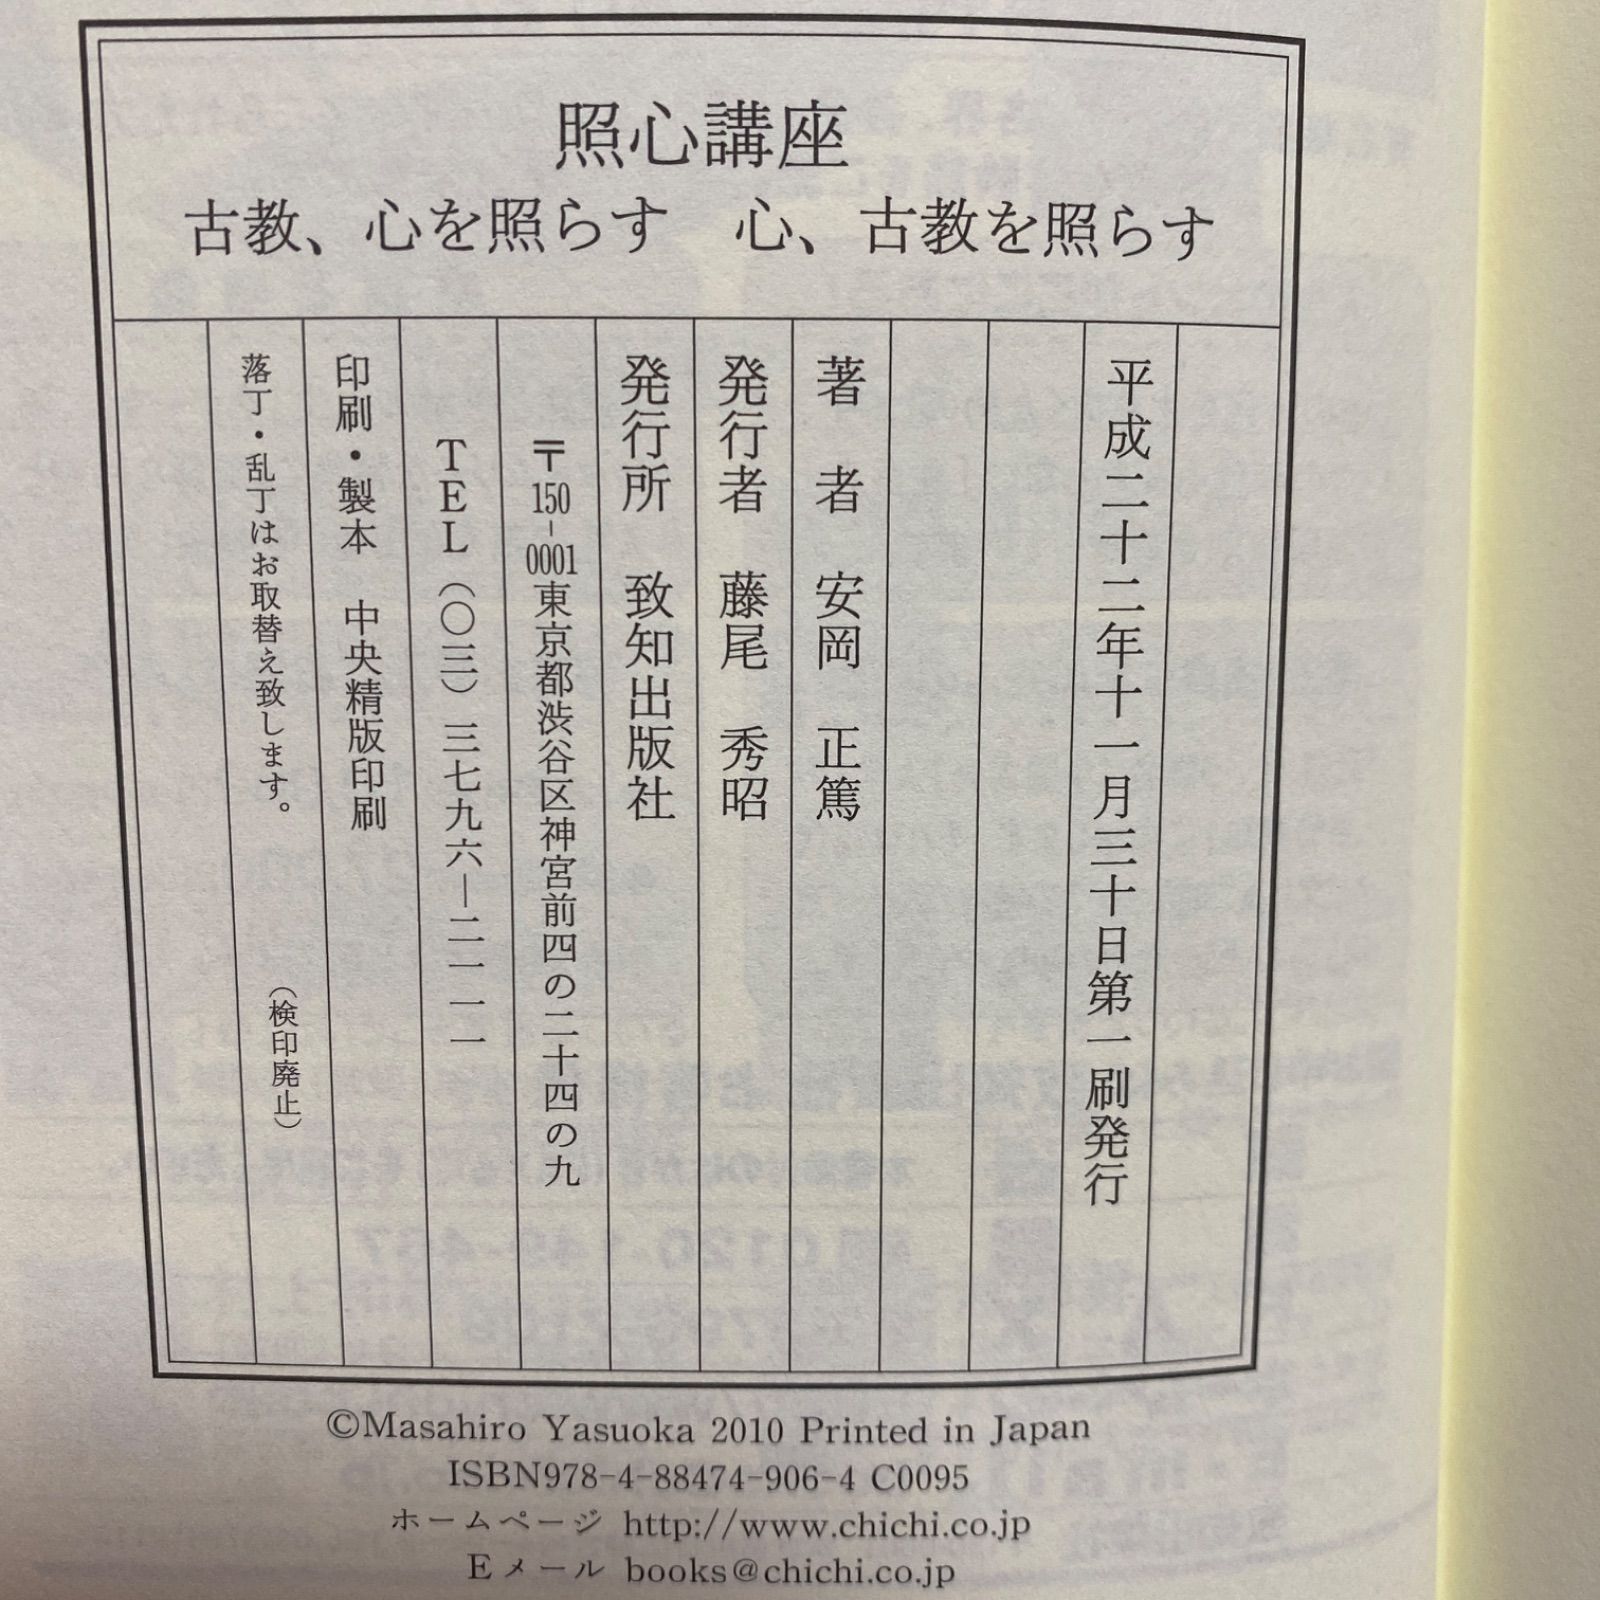 照心講座
古教、心を照らす　心、古教を照らす
平成二十二年十一月三十日第一刷発行
著　者　安岡　正篤
発行者　藤尾　秀昭
発行所　致知出版社
〒150-0001東京都渋谷区神宮前四の二十四の九
TEL（〇三）三七九六―二一一一
印刷・製本　中央精版印刷
落丁・乱丁はお取替え致します。　（検印廃止）
©Masahiro Yasuoka 2010 Printed in Japan
ISBN978-4-88474-906-4 C0095
ホームページ http://www.chichi.co.jp
Eメール books@chichi.co.jp